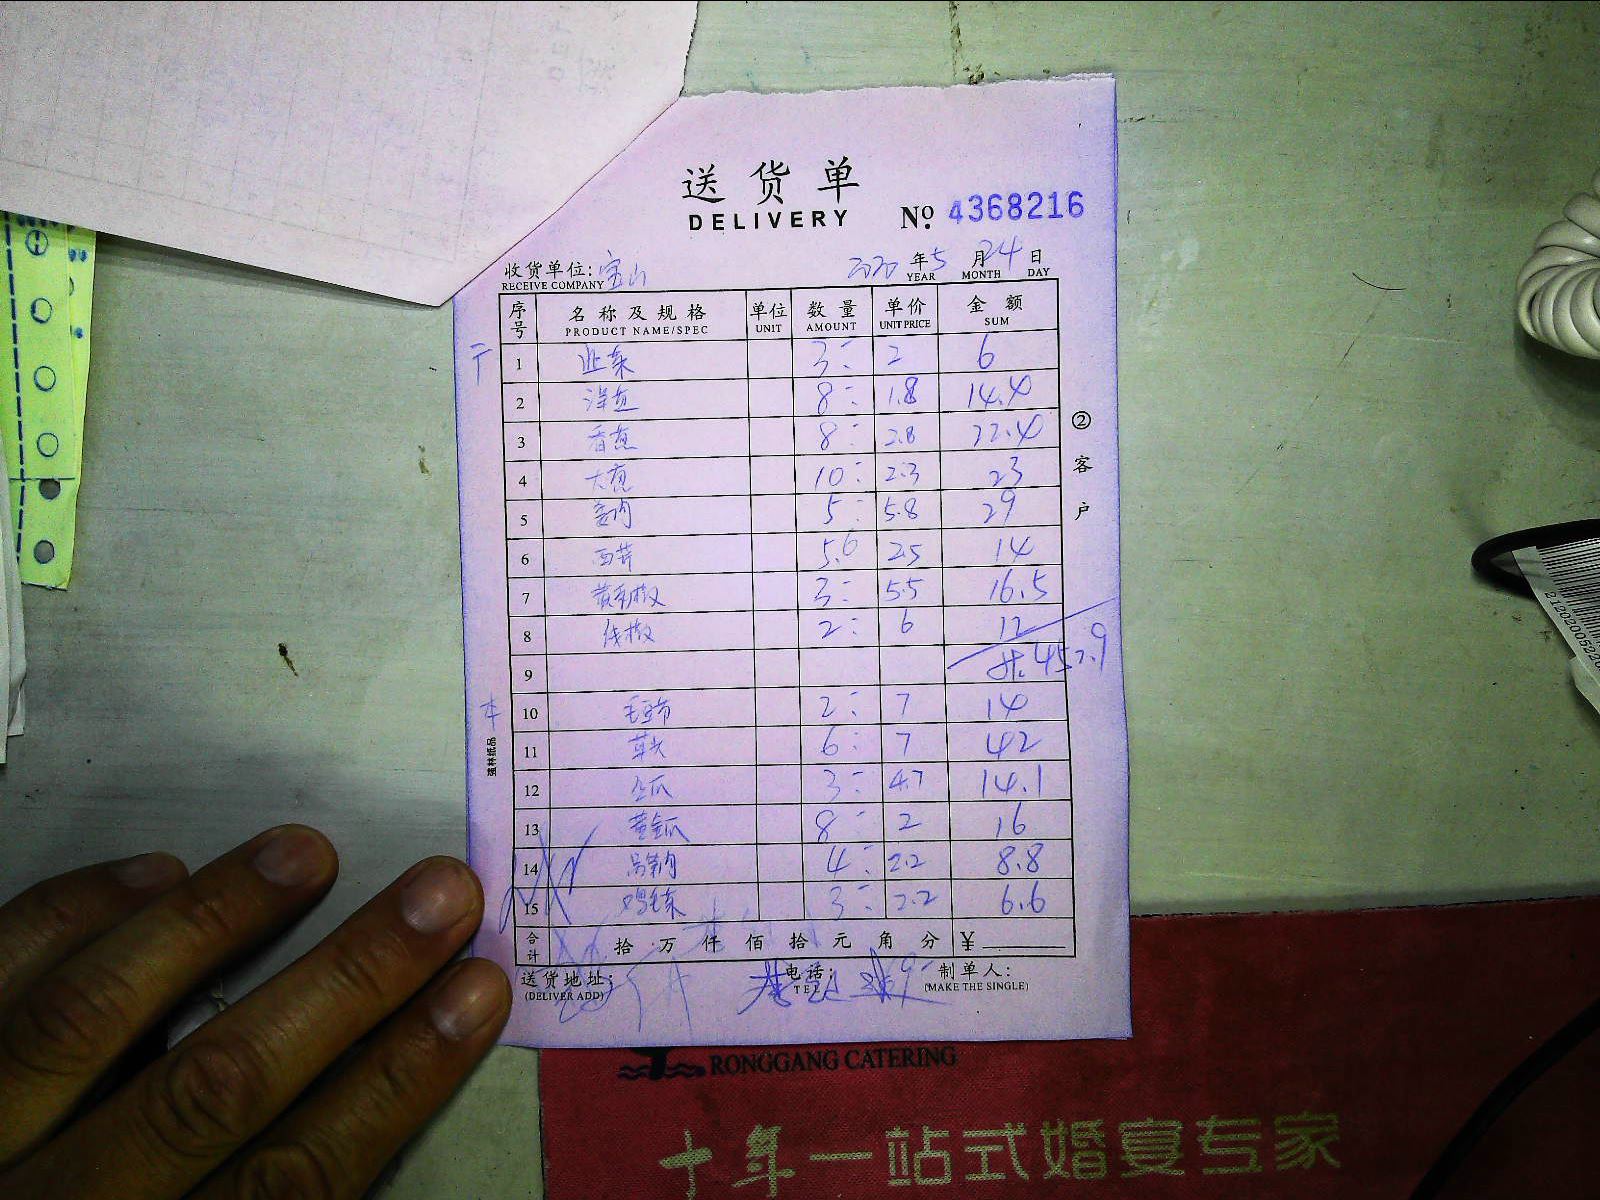 送货单
DELIVERY
No. 4368216
收货单位: 宝山 2020 年 5 月 24 日
RECEIVE COMPANY YEAR MONTH DAY
序号 名称及规格 单位 数量 单价 金额
PRODUCT NAME/SPEC UNIT AMOUNT UNIT PRICE SUM
1 韭菜 3 2 6
2 洋葱 8 1.8 14.4
3 香葱 8 2.8 22.4
4 大葱 10 2.3 23
5 姜肉 5 5.8 29
6 西芹 5.6 2.5 14
7 黄彩椒 3 5.5 16.5
8 线椒 2 6 12
9 共 457.9
本
10 毛豆节 2 7 14
11 草头 6 7 42
12 冬瓜 3 4.7 14.1
13 黄金瓜 8 2 16
14 4 2.2 8.8
15 鸡毛菜 3 2.2 6.6
合计 拾 万 仟 佰 拾 元 角 分 ¥
送货地址: 电话: 制单人:
(DELIVER ADD) TEL (MAKE THE SINGLE)
②客户
强林纸品
RONGGANG CATERING
十年一站式婚宴专家